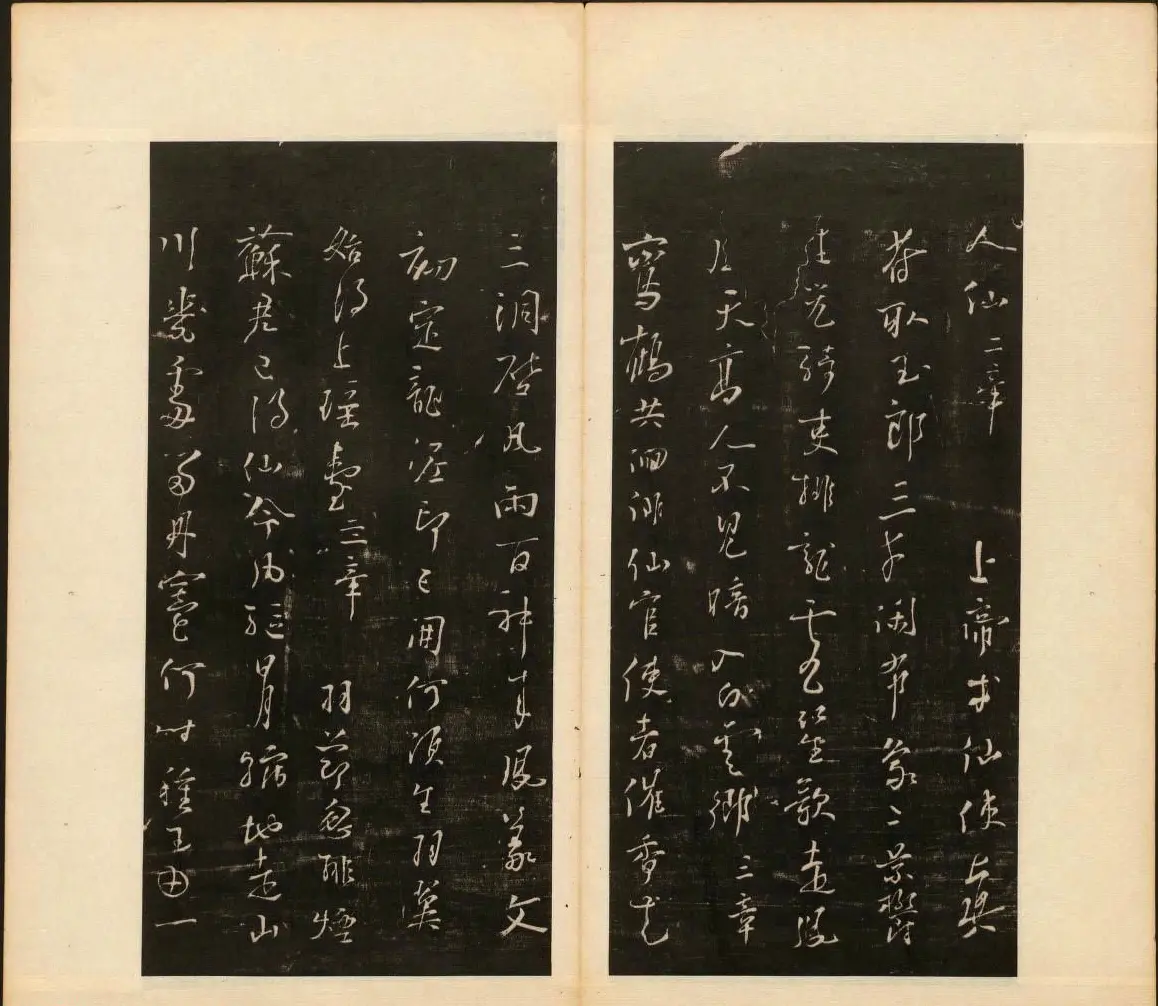 人仙 二章 上帝求仙使真
符取玉郎三才閑布象二景鬱
生光騎吏排龍虎笙歌走鳳
凰天高人不見暗入白雲鄉 三章
鸞鶴共徊徘仙官使者催香花
三洞啓風雨百神來鳳篆文
初定龍泥印已開何須生羽翼
始得上瑤臺 三章 羽節忽排煙
蘇君已得仙命風驅日月縮地走山
川幾處留丹竈何時種玉田一